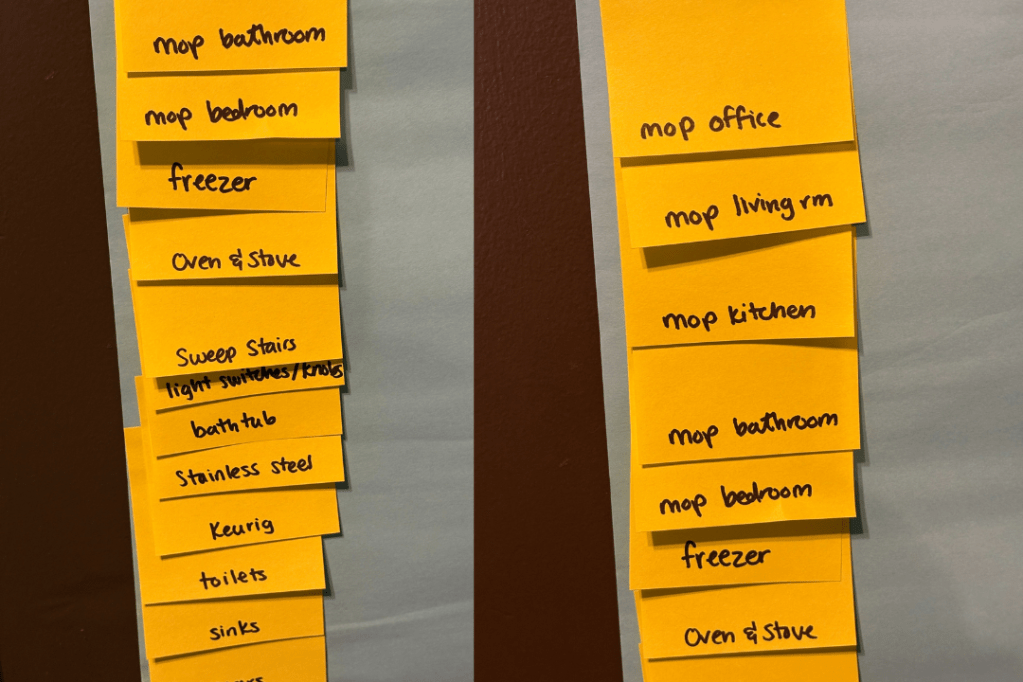 mop bathroom
mop bedroom
freezer
Oven & Stove
Sweep Stairs
light switches/knobs
bathtub
Stainless steel
Keurig
toilets
sinks
mop office
mop living rm
mop kitchen
mop bathroom
mop bedroom
freezer
Oven & Stove